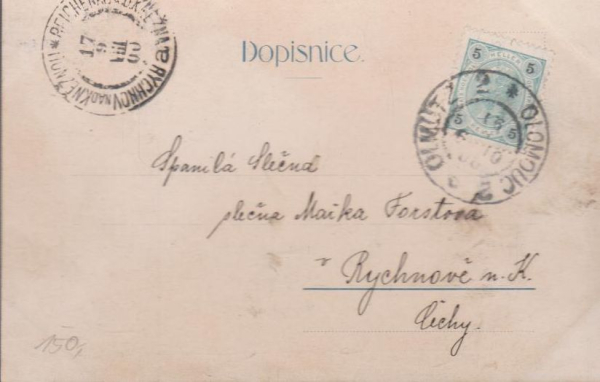 REICHENAU A.D. KNĚŽNA
RYCHNOV NAD KNĚŽNOU
17
9
VIII
00
Dopisnice.
5 HELLER 5
5 5
OLMÜTZ 2 * OLOMOUC 2
Spanilá Slečna
slečna Mařka Forstova
v Rychnově n. K.
Čechy.
150,